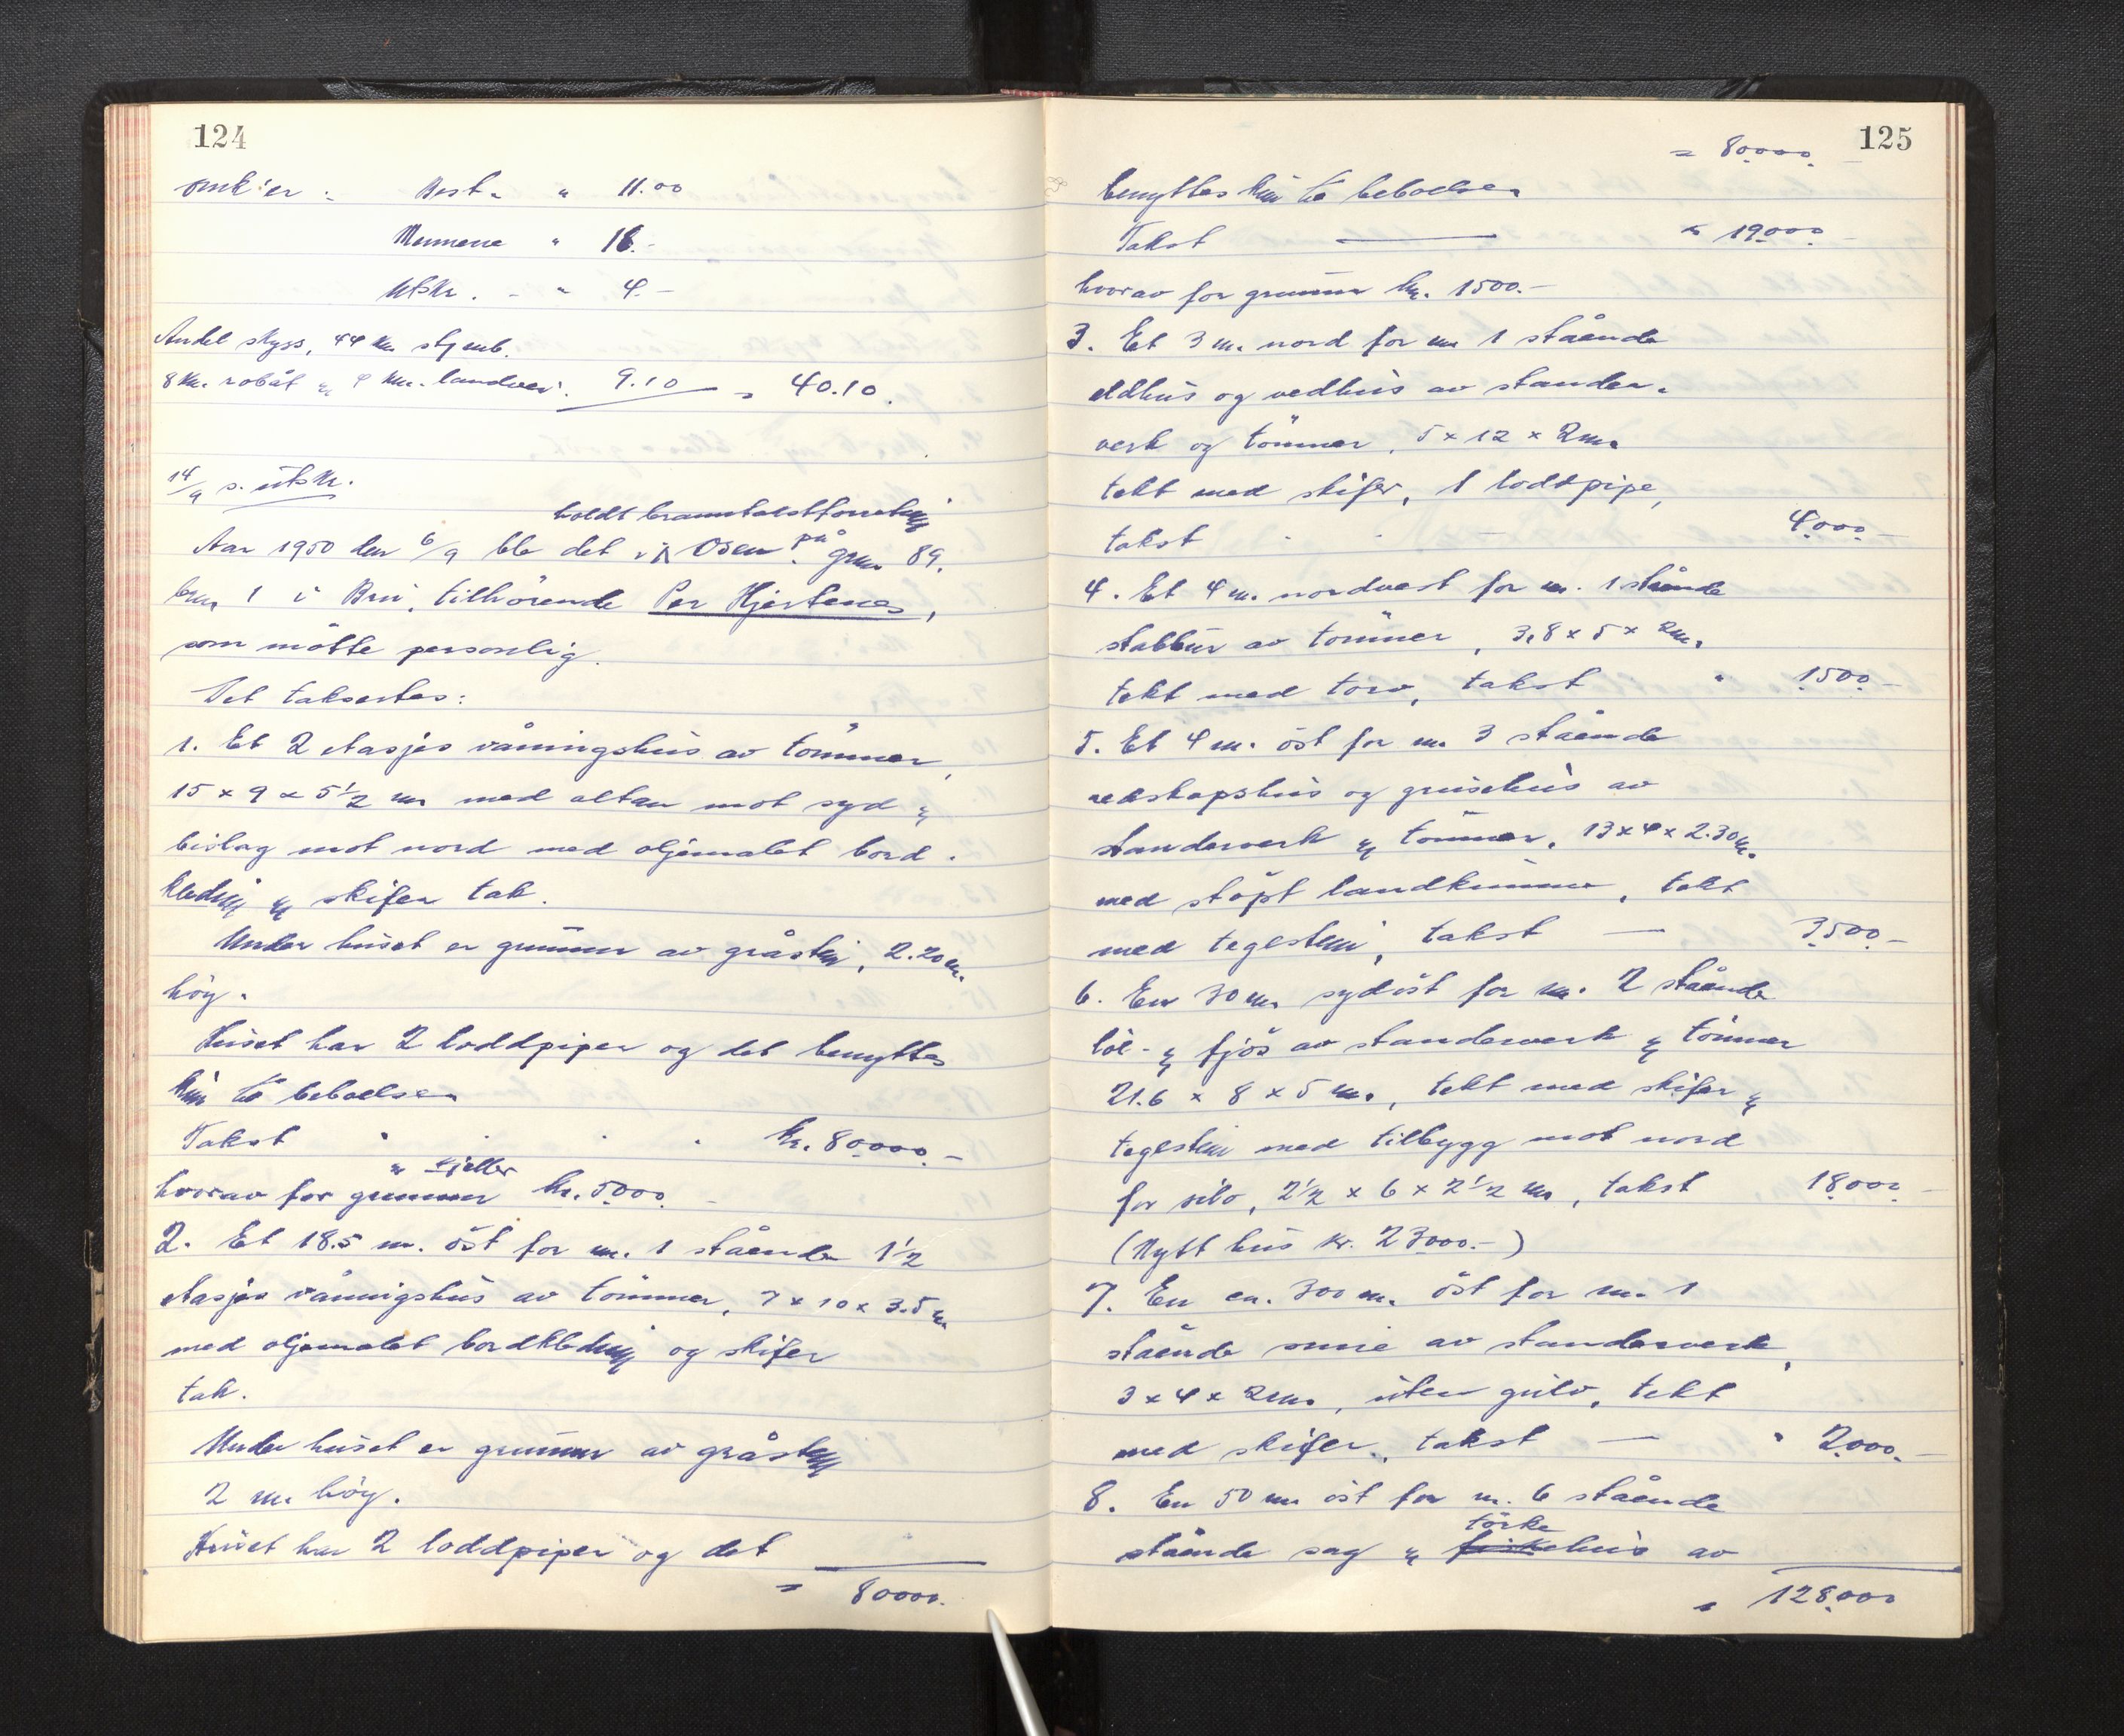 124
omk'er : Best. " 11.00
Mennene " 16.-
Utskr. - " 4.-
Andel skyss, 44 km stjmb.
8 km. robåt & 4 km. landvei: 9.10 = 40.10.
14/9 s. utskr.
holdt branntakstforretning
Aar 1950 den 6/9 ble det i Osen på gnr 89.
bnr 1 i Bru, tilhörende Per Hjertenes,
som mötte personlig.
Det taksertes:
1. Et 2 etasjes våningshus av tömmer,
15 x 9 x 5 1/2 m med altan mot syd &
bislag mot nord med oljemalet bord-
kledning & skifer tak.
Under huset er grunnmur av gråstein, 2.20 m.
höy.
Huset har 2 loddpiper og det benyttes
kun til beboelse.
Takst kr. 80000.-
& kjeller
hvorav for grunnmur kr. 5000.-
2. Et 18.5 m. öst for nr. 1 stående 1 1/2
etasjes våningshus av tömmer, 7 x 10 x 3.5 m
med oljemalet bordkledning og skifer
tak.
Under huset er grunnmur av gråstein
2 m. höy.
Huset har 2 loddpiper og det
= 80000.
125
= 80000.
benyttes kun til beboelse.
Takst " 19000.-
hvorav for grunnmur kr. 1500.-
3. Et 3 m. nord for nr 1 stående
eldhus og vedhus av stander-
verk og tömmer, 5 x 12 x 2 m.
tekt med skifer, 1 loddpipe,
takst - 4000.-
4. Et 4 m. nordvest for nr. 1 stående
stabbur av tömmer, 3,8 x 5 x 2 m.
tekt med torv, takst " 1500.-
5. Et 4 m. öst for nr 3 stående
redskapshus og grisehus av
standerverk & tömmer, 13 x 4 x 2.30 m.
med stöpt landkummе, tekt
med teglstein, takst 3500.-
6. En 30 m. sydöst for nr. 2 stående
löe- & fjös av standerverk & tömmer
21.6 x 8 x 5 m., tekt med skifer &
teglstein med tilbygg mot nord
for silo, 2 1/2 x 6 x 2 1/2 m, takst 18000.-
(Nytt hus kr. 23000.-)
7. En ca. 300 m. öst for nr. 1
stående smie av standerverk,
3 x 4 x 2 m., uten gulv, tekt
med skifer, takst " 2000.-
8. En 50 m öst for nr. 6 stående
törke
stående sag & fiskehus av
= 128000